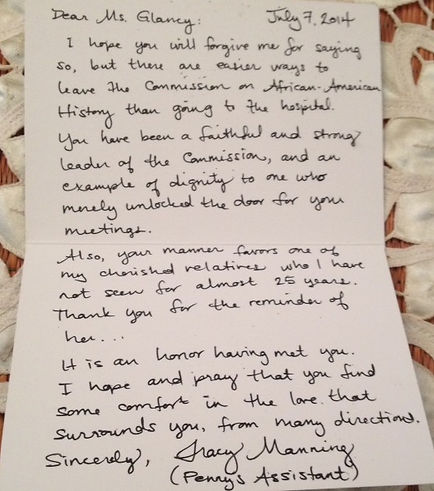 Dear Ms. Glancy: July 7, 2014
I hope you will forgive me for saying
so, but there are easier ways to
leave the Commission on African-American
History than going to the hospital.
You have been a faithful and strong
leader of the Commission, and an
example of dignity to one who
merely unlocked the door for your
meetings.
Also, your manner favors one of
my cherished relatives who I have
not seen for almost 25 years.
Thank you for the reminder of
her...
It is an honor having met you.
I hope and pray that you find
some comfort in the love that
surrounds you, from many directions.
Sincerely, Tracy Manning
(Penny's Assistant)